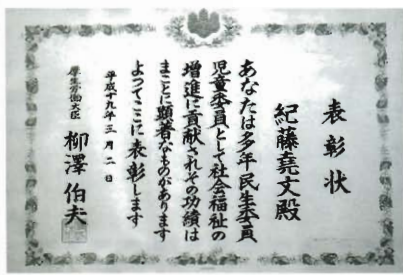 表彰状
紀藤堯文殿
あなたは多年民生委員
児童委員として社会福祉の
増進に貢献されその功績は
まことに顕著なものがあります
よってここに表彰します
平成十九年三月二日
厚生労働大臣 柳澤伯夫